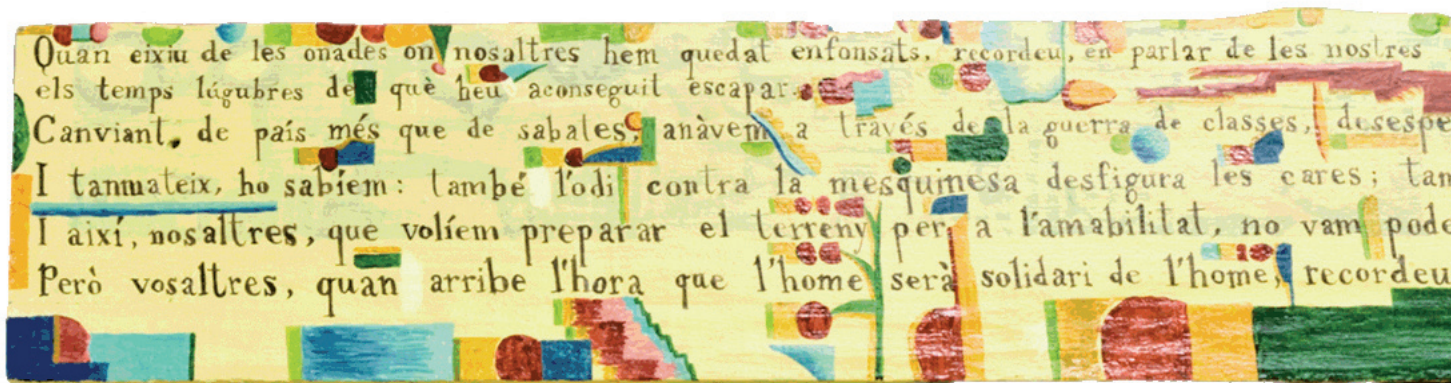 Quan eixiu de les onades on nosaltres hem quedat enfonsats, recordeu, en parlar de les nostres
els temps lúgubres de què heu aconseguit escapar.
Canviant, de país més que de sabates, anàvem a través de la guerra de classes, desespe
I tanmateix, ho sabíem: també l'odi contra la mesquinesa desfigura les cares; tam
I així, nosaltres, que volíem preparar el terreny per a l'amabilitat, no vam pode
Però vosaltres, quan arribe l'hora que l'home serà solidari de l'home, recordeu